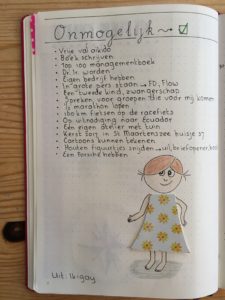 Onmogelijk ~→ ☑
• Vrije val aikido
• Boek schrijven
• Top 100 managementboek
• Dr. Ir. worden
• Eigen bedrijf hebben
• In grote pers staan → FD, Flow
• Een tweede kind, zwangerschap
• Spreken, voor groepen die voor mij komen
• ½ marathon lopen
• 100 km fietsen op de racefiets
• Op uitnodiging naar Ecuador
• Een eigen atelier met tuin
• Kerst 2017 in St Maartenszee huisje 97
• Cartoons kunnen tekenen
• Houten figuurtjes snijden → uil, briefopener,
• Een Porsche hebben
Uit: Ikigay